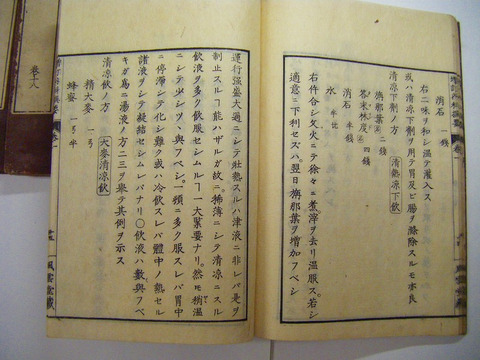 消石 一錢
右二味ヲ和シ温テ灌入ス
或ハ清涼下劑ヲ用テ胃及ビ腸ヲ滌除スルモ亦良
清涼下劑ノ方 清熱凉下飲
旃那葉 二錢
荅末林度 四錢
消石 半錢
水 半
右件合シ文火ニテ徐々ニ煮滓ヲ去リ温服ス若シ
適意ニ下利セズハ翌日旃那葉ヲ増加フベシ
運行強盛大過ニシテ壮熱スルハ津液ニ非レバ是ヲ
制止スルヿ能ハザルガ故ニ稀薄ニシテ清凉ニスル
飲液ヲ多ク飲服セシムルヿ一大緊要ナリ然モ温
ニシテ少シツヽ與フベシ一頓ニ多ク服スレバ胃中
ニ停滞シテ化シ難ク或ハ冷飲スレバ體中ノ熱セル
諸液ヲシテ凝結セシムレバナリ〇飲液ハ數與フベ
キガ爲ニ湯液ノ方二三ヲ挙テ其例ヲ示ス
清涼飲ノ方 大麥清涼飲
精大麥 一
蜂蜜 一 半
風雲堂蔵
巻十八